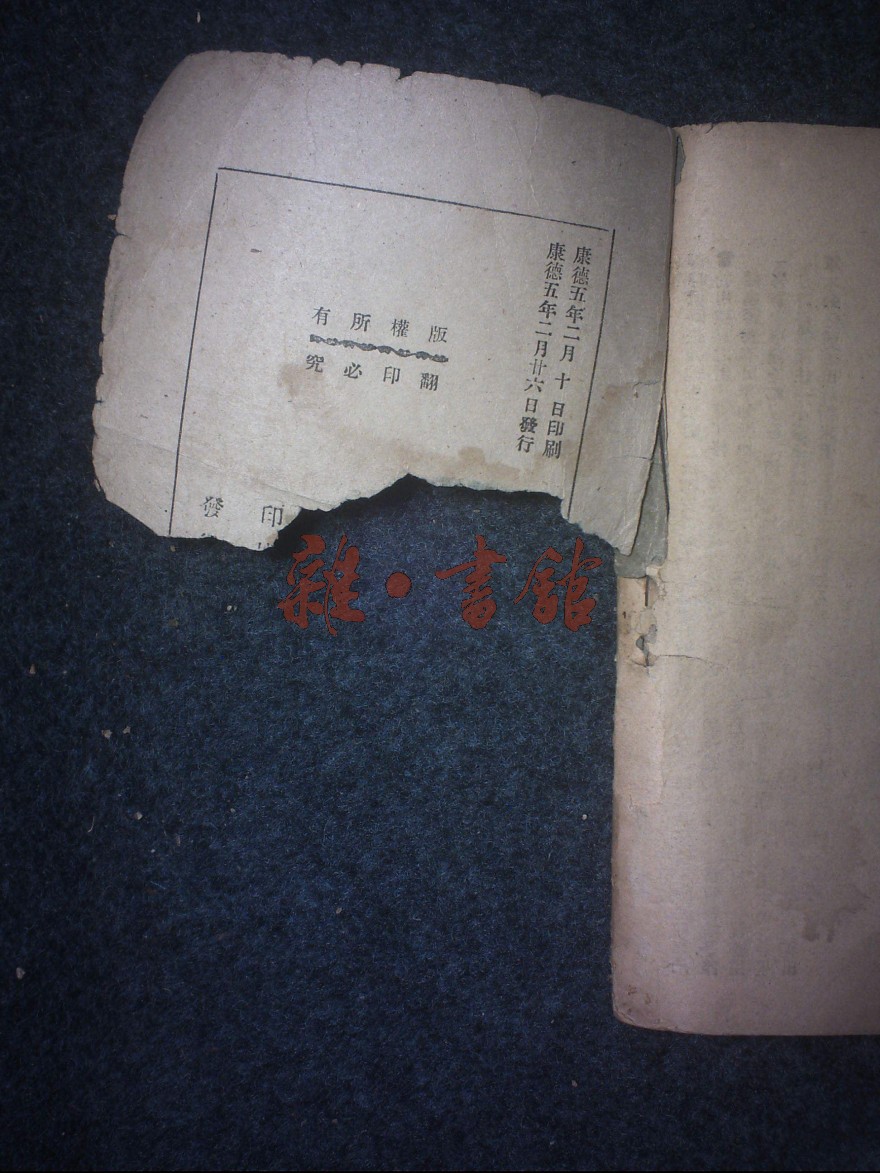 康德五年二月十日印刷
康德五年二月廿六日發行
版權所有
翻印必究
印
發
雜·書館